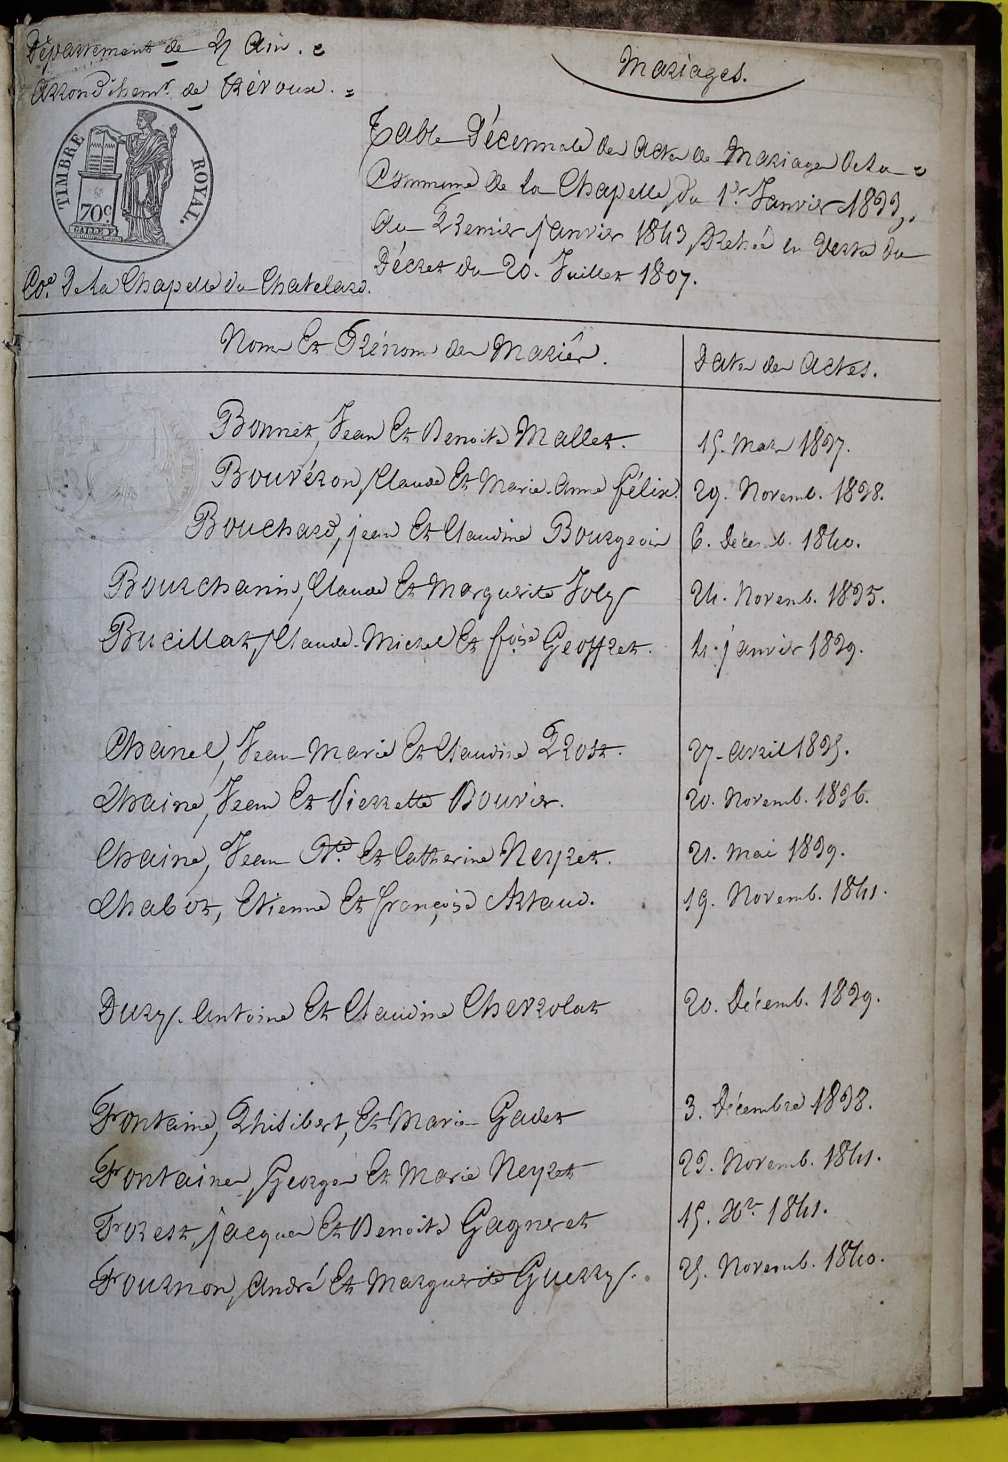 Département de L'Ain.
Arrondissemt. de Trévoux.
Mariages.
TIMBRE ROYAL.
70c
Table Décennale des Actes de Mariages de La
Commune de La Chapelle, du 1er. Janvier 1833,
au Premier janvier 1843, Dressé en vertu du
Décret du 20. Juillet 1807.
Coe. De La Chapelle du Chatelard.
Noms Et Prénoms des Mariés.
Dates des Actes.
Bonnet, Jean Et Benoite Mallet. 15. Mars 1837.
Bouvéron, Claude Et Marie-Anne félix. 29. Novemb. 1838.
Bouchard, jean Et Claudine Bourgeois 6. Décemb. 1840.
Bourchanin, Claude Et Marguerite Joly 24. Novemb. 1835.
Bucillat, Claude-Michel Et foise Geoffret. 4. janvier 1839.
Chanel, Jean-Marie Et Claudine Prost. 27. avril 1835.
Chaine, Jean Et Pierrette Bouvier. 20. Novemb. 1836.
Chaine, Jean Et Catherine Neyret. 21. Mai 1839.
Chabot, Etienne Et françoise Artaud. 19. Novemb. 1841
Dury. Antoine Et Claudine Chervolat 20. Décemb. 1839.
Fontaine, Philibert, Et Marie Gadet 3. Décembre 1838.
Fontaine, George Et Marie Neyret 23. Novemb. 1841.
Forest, jacques Et Benoite Gagneret 15. Xbr. 1841.
Fournon, André Et Marguerite Guerry. 25. Novemb. 1840.